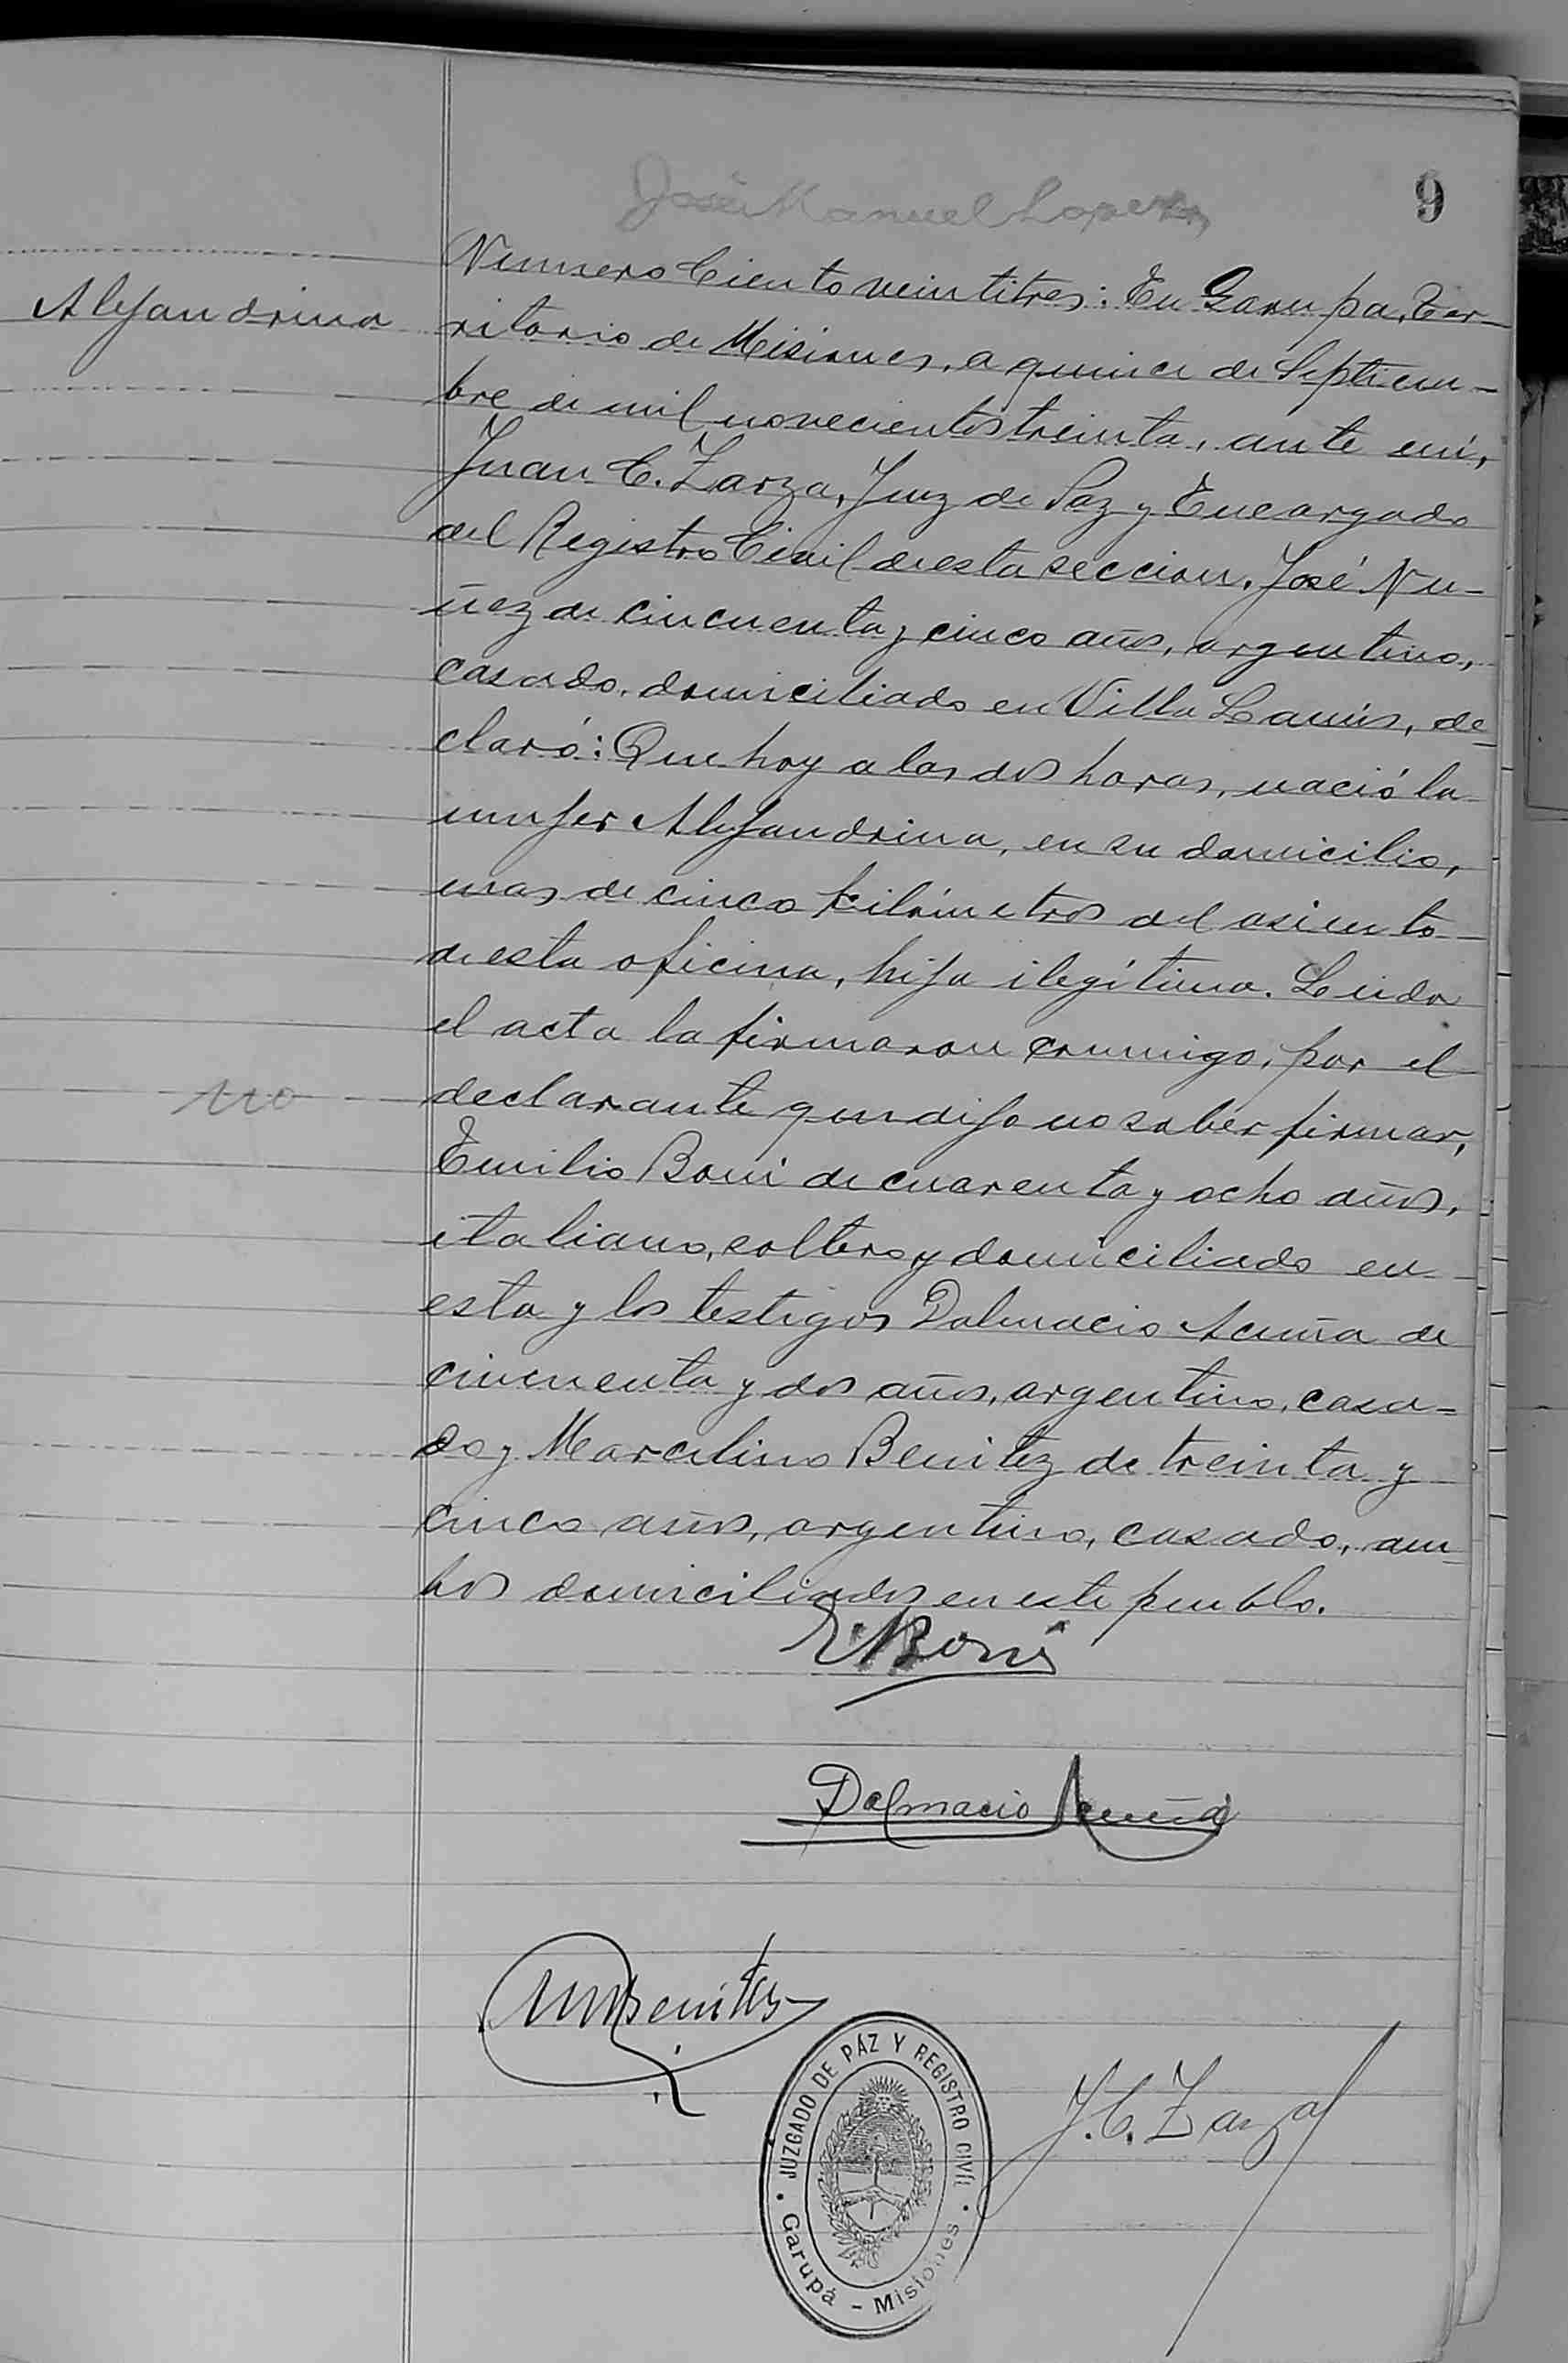 9
José Manuel Lopez
Numero Ciento veintitres: En Garupa, Ter-
Alejandrina
ritorio de Misiones, a quince de Septiem-
bre de mil novecientos treinta, ante mi,
Juan C. Zarza, Juez de Paz y Encargado
del Registro Civil de esta seccion. José Nu-
ñez de cincuenta y cinco años, argentino,
casado, domiciliado en Villa Lanús, de-
claró: Que hoy a las dos horas, nació la
mujer Alejandrina, en su domicilio,
mas de cinco kilómetros del asiento
de esta oficina, hija ilegítima. Leida
el acta la firmaron conmigo, por el
no
declarante que dijo no saber firmar,
Emilio Boni de cuarenta y ocho años,
italiano, soltero y domiciliado en
esta y los testigos Dalmacio Acuña de
cincuenta y dos años, argentino, casa-
do y Marcelino Benitez de treinta y
cinco años, argentino, casado, am-
bos domiciliados en este pueblo.
E Boni
Dalmacio Acuña
M Benitez
J. C. Zarza
JUZGADO DE PÁZ Y REGISTRO CIVIL
Garupá - Misiones